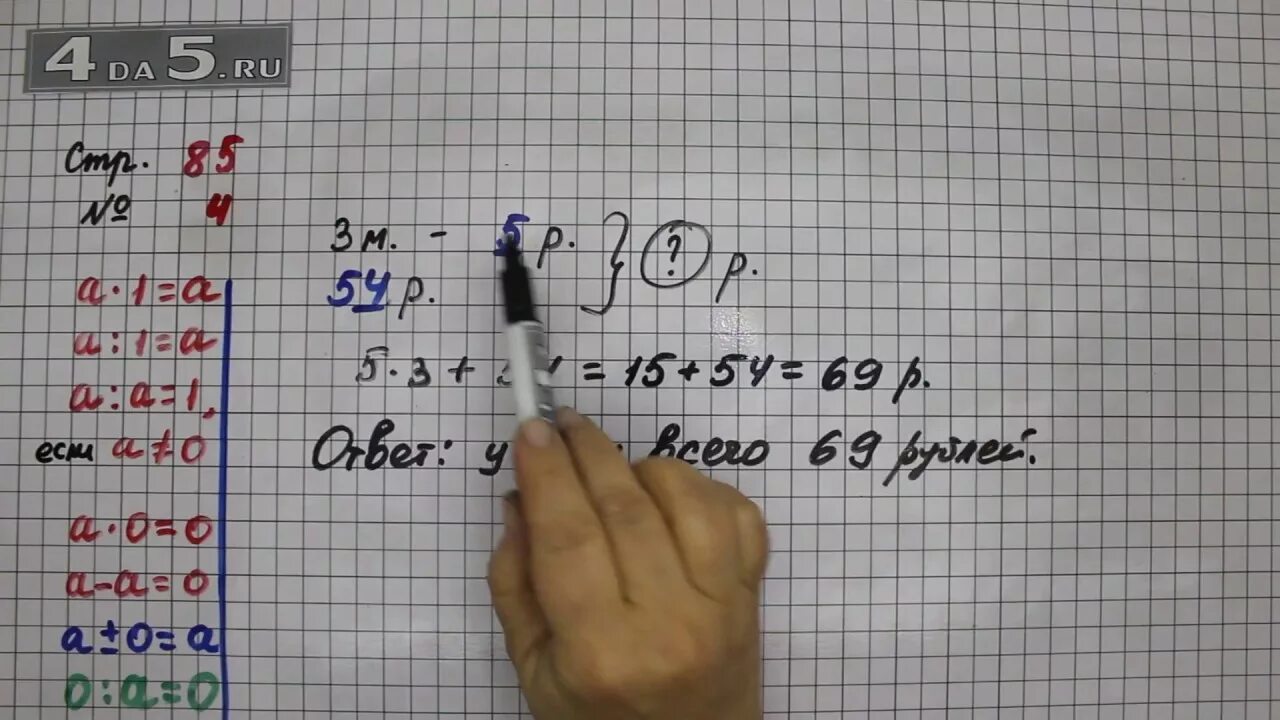 4DA5.RU
Стр. 85
№ 4
a·1=a
a:1=a
a:a=1,
если a≠0
a·0=0
a-a=0
a±0=a
0:a=0
3 м. - 5 р. } ? р.
54 р.
5·3+ = 15+54= 69 р.
Ответ: всего 69 рублей.